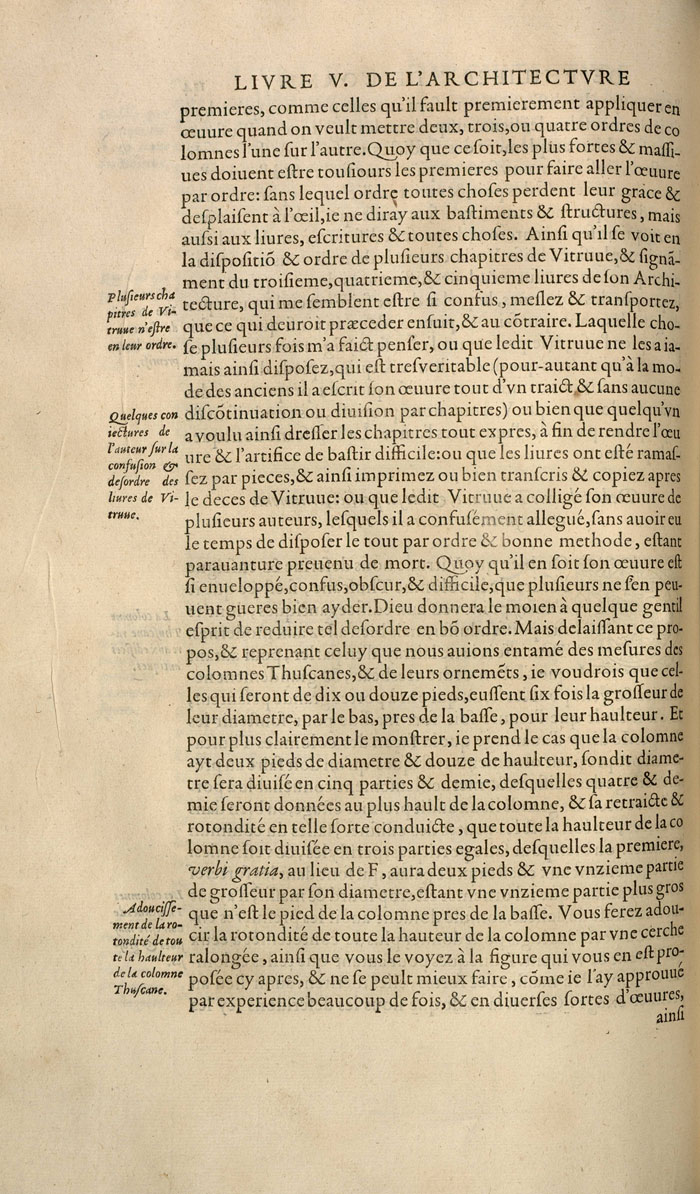 LIVRE V. DE L'ARCHITECTVRE
premieres, comme celles qu'il fault premierement appliquer en
œuure quand on veult mettre deux, trois, ou quatre ordres de co
lomnes l'une ſur l'autre. Quoy que ce ſoit, les plus fortes & maſſi-
ues doiuent eſtre touſiours les premieres pour faire aller l'œuure
par ordre: ſans lequel ordre toutes choſes perdent leur grace &
deſplaiſent à l'œil, ie ne diray aux baſtiments & ſtructures, mais
auſsi aux liures, eſcritures & toutes choſes. Ainſi qu'il ſe voit en
la diſpoſitiõ & ordre de pluſieurs chapitres de Vitruue, & ſignã-
ment du troiſieme, quatrieme, & cinquieme liures de ſon Archi-
tecture, qui me ſemblent eſtre ſi confus, meſlez & tranſportez,
que ce qui deuroit præceder enſuit, & au cõtraire. Laquelle cho-
ſe pluſieurs fois m'a faict penſer, ou que ledit Vitruue ne les a ia-
mais ainſi diſpoſez, qui eſt treſveritable (pour-autant qu'à la mo-
de des anciens il a eſcrit ſon œuure tout d'vn traict & ſans aucune
diſcõtinuation ou diuiſion par chapitres) ou bien que quelqu'vn
a voulu ainſi dreſſer les chapitres tout expres, à fin de rendre l'œu
ure & l'artifice de baſtir difficile: ou que les liures ont eſté ramaſ-
ſez par pieces, & ainſi imprimez ou bien tranſcris & copiez apres
le deces de Vitruue: ou que ledit Vitruue a colligé ſon œuure de
pluſieurs auteurs, leſquels il a confuſément allegué, ſans auoir eu
le temps de diſpoſer le tout par ordre & bonne methode, eſtant
parauanture preuenu de mort. Quoy qu'il en ſoit ſon œuure eſt
ſi enueloppé, confus, obſcur, & difficile, que pluſieurs ne ſ'en peu-
uent gueres bien ayder. Dieu donnera le moien à quelque gentil
eſprit de reduire tel deſordre en bõ ordre. Mais delaiſſant ce pro-
pos, & reprenant celuy que nous auions entamé des meſures des
colomnes Thuſcanes, & de leurs ornemẽts, ie voudrois que cel-
les qui ſeront de dix ou douze pieds, euſſent ſix fois la groſſeur de
leur diametre, par le bas, pres de la baſſe, pour leur haulteur. Et
pour plus clairement le monſtrer, ie prend le cas que la colomne
ayt deux pieds de diametre & douze de haulteur, ſondit diame-
tre ſera diuiſé en cinq parties & demie, deſquelles quatre & de-
mie ſeront données au plus hault de la colomne, & ſa retraicte &
rotondité en telle ſorte conduicte, que toute la haulteur de la co
lomne ſoit diuiſée en trois parties egales, deſquelles la premiere,
verbi gratia, au lieu de F, aura deux pieds & vne vnzieme partie
de groſſeur par ſon diametre, eſtant vne vnzieme partie plus gros
que n'eſt le pied de la colomne pres de la baſſe. Vous ferez adou-
cir la rotondité de toute la hauteur de la colomne par vne cerche
ralongée, ainſi que vous le voyez à la figure qui vous en eſt pro-
poſée cy apres, & ne ſe peult mieux faire, cõme ie l'ay approuué
par experience beaucoup de fois, & en diuerſes ſortes d'œuures,
ainſi
Pluſieurs cha
pitres de Vi-
truue n'eſtre
en leur ordre.
Quelques con
iectures de
l'auteur ſur la
confuſion &
deſordre des
liures de Vi-
truue.
Adouciſſe-
ment de la ro-
tondité de tou
te la haulteur
de la colomne
Thuſcane.